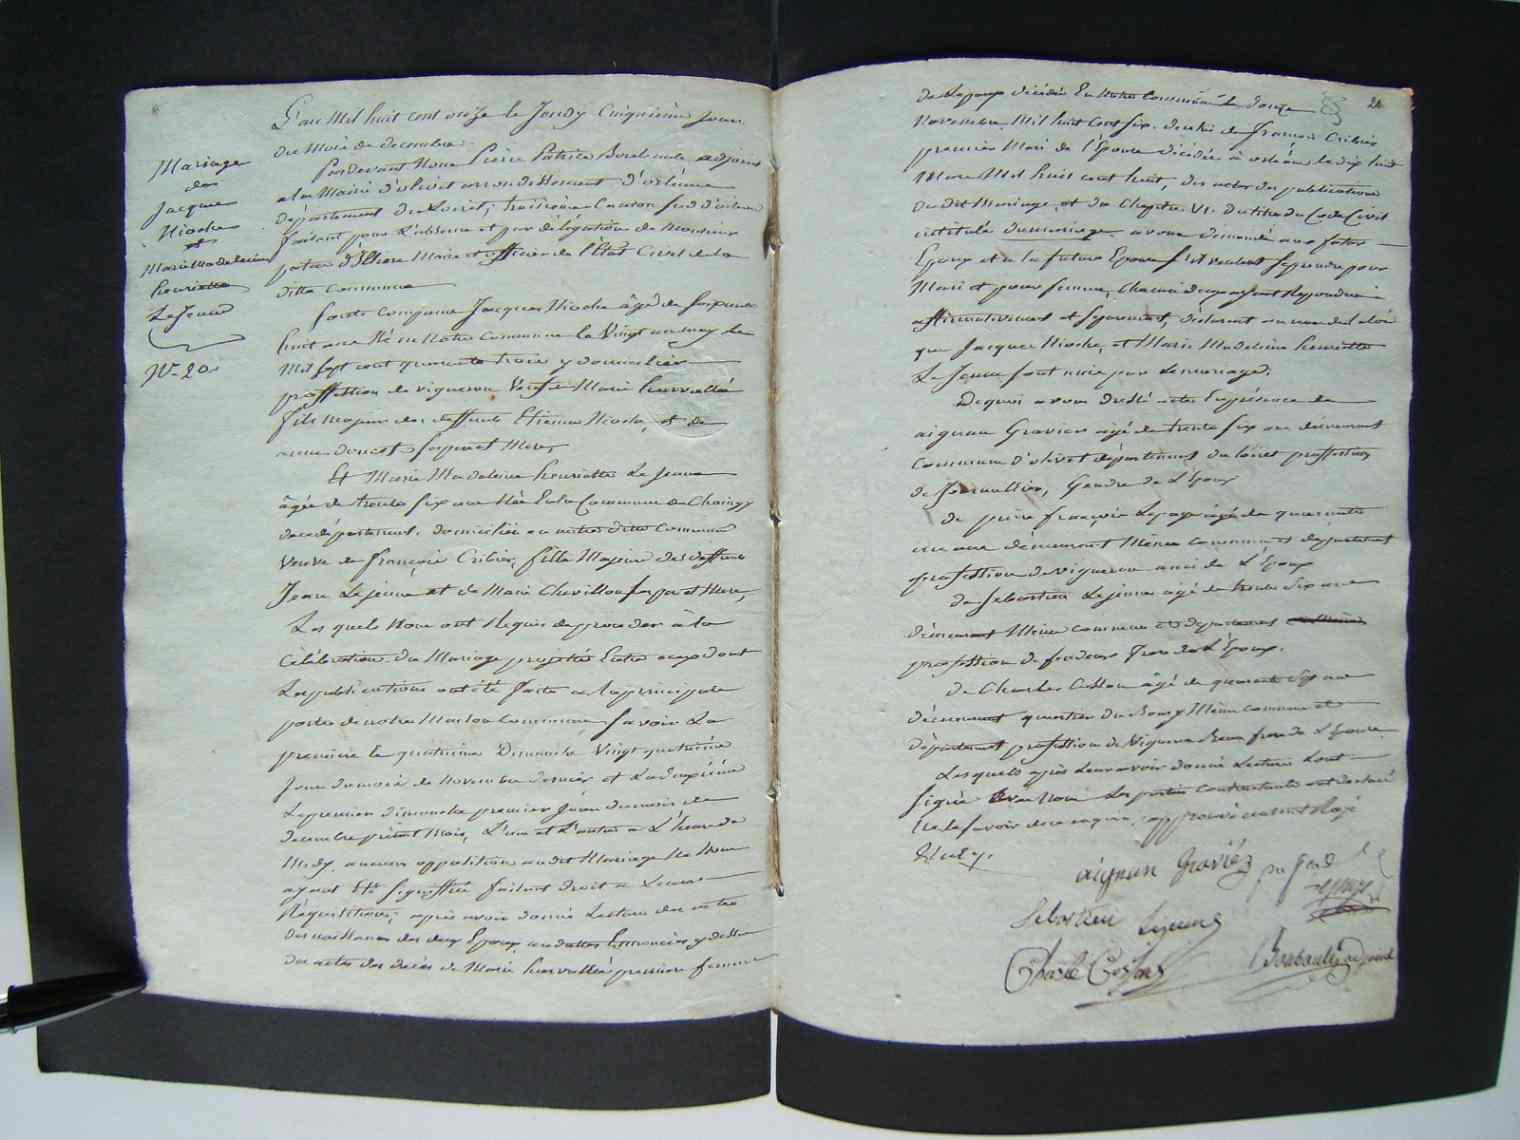 Mariage
de
Jacques
Hioche
et
Marie Madeleine
henriette
Le Jeune
N.º 20.
L'an Mil huit cent onze le Jeudy Cinquieme Jour
du Mois de decembre.
Pardevant Nous Pierre Patrice adjoint
a la Mairie d'olivet arrondissement d'orléans
département du Loiret, troisieme Canton sud d'orleans
faisant pour l'absence et par délégation de Monsieur
Maire et officier de l'État Civil de la
ditte Commune
Sont Comparus Jacques Hioche âgé de soixante
huit ans Né en Notre Commune le Vingt un may
Mil sept cent quarante trois y domicilié
proffession de vigneron Veuf de Marie hurvallée
fils Majeur des deffunts Etienne Hioche, et de
anne ses pere et Mere,
Et Marie Madeleine henriette Le Jeune
âgée de trente six ans Née En la Commune de Chaingy
de ce département, domiciliée en notre ditte Commune
Veuve de françois Cribier, fille Majeure des deffunts
Jean Lejeune et de Marie Chevillon ses pere et Mere,
Les quels Nous ont Requis de proceder à la
Célébration du Mariage projetté Entre eux dont
Les publications ont été faites a la principale
porte de notre Maison Commune, savoir La
premiere le quatrieme Dimanche Vingt quatrieme
Jour du mois de Novembre dernier et La deuxiéme
Le premier dimanche premier Jour du mois de
decembre présent Mois, L'une et L'autre a L'heure de
Midy, aucune opposition audit Mariage Ne Nous
ayant Eté Signiffiée faisant droit a Leurs
Réquisitions; après avoir donné Lecture des actes
de naissances des deux Epoux
des actes des décès de Marie hurvallée premiere femme
24
de L'epoux décédée En Notre Commune le douze
Novembre Mil huit Cent six, de celui de francois Cribier
premier Mari de l'Epouse décédé à orléans le dix huit
Mars Mil huit cent huit, des actes de publications
du dit Mariage, et du Chapitre VI. du titre du Code Civil
intitulé du mariage avons demandé aux futur
Epoux et a la future Epouse s'ils veulent se prendre pour
Mari et pour femme, Chacun d'eux ayant Repondu
affirmativement et séparement, déclarons au nom de la loi
que Jacques Hioche, et Marie Madeleine henriette
Le Jeune sont unis par le mariage.
De quoi avons dressé acte En présence de
aignan Gravier agé de trente six ans demeurant
Commune d'olivet département du loiret proffession
de Journallier, Gendre de L'Epoux
de pierre françois Lepage agé de quarante
ans demeurant Même commune et departement
profession de Vigneron ami de L'Epoux
de Sebastien Lejeune agé de trente six ans
demeurant Même commune et departement
proffession de frere de L'Epouse.
de Charles Cosson âgé de quarante six ans
demeurant quartier du Bourg Même commune et
département proffession de Vigneron Beau frere de L'Epouse
Lesquels après Leur avoir donné Lecture L'ont
Signé avec Nous Les parties Contractantes ont declaré
Ne le savoir de ce enquis, approuvé mot Rayé
Nul.
aignan Graviez
Lepage
Sebastien Lejeune
Charle Cosson
adjoint